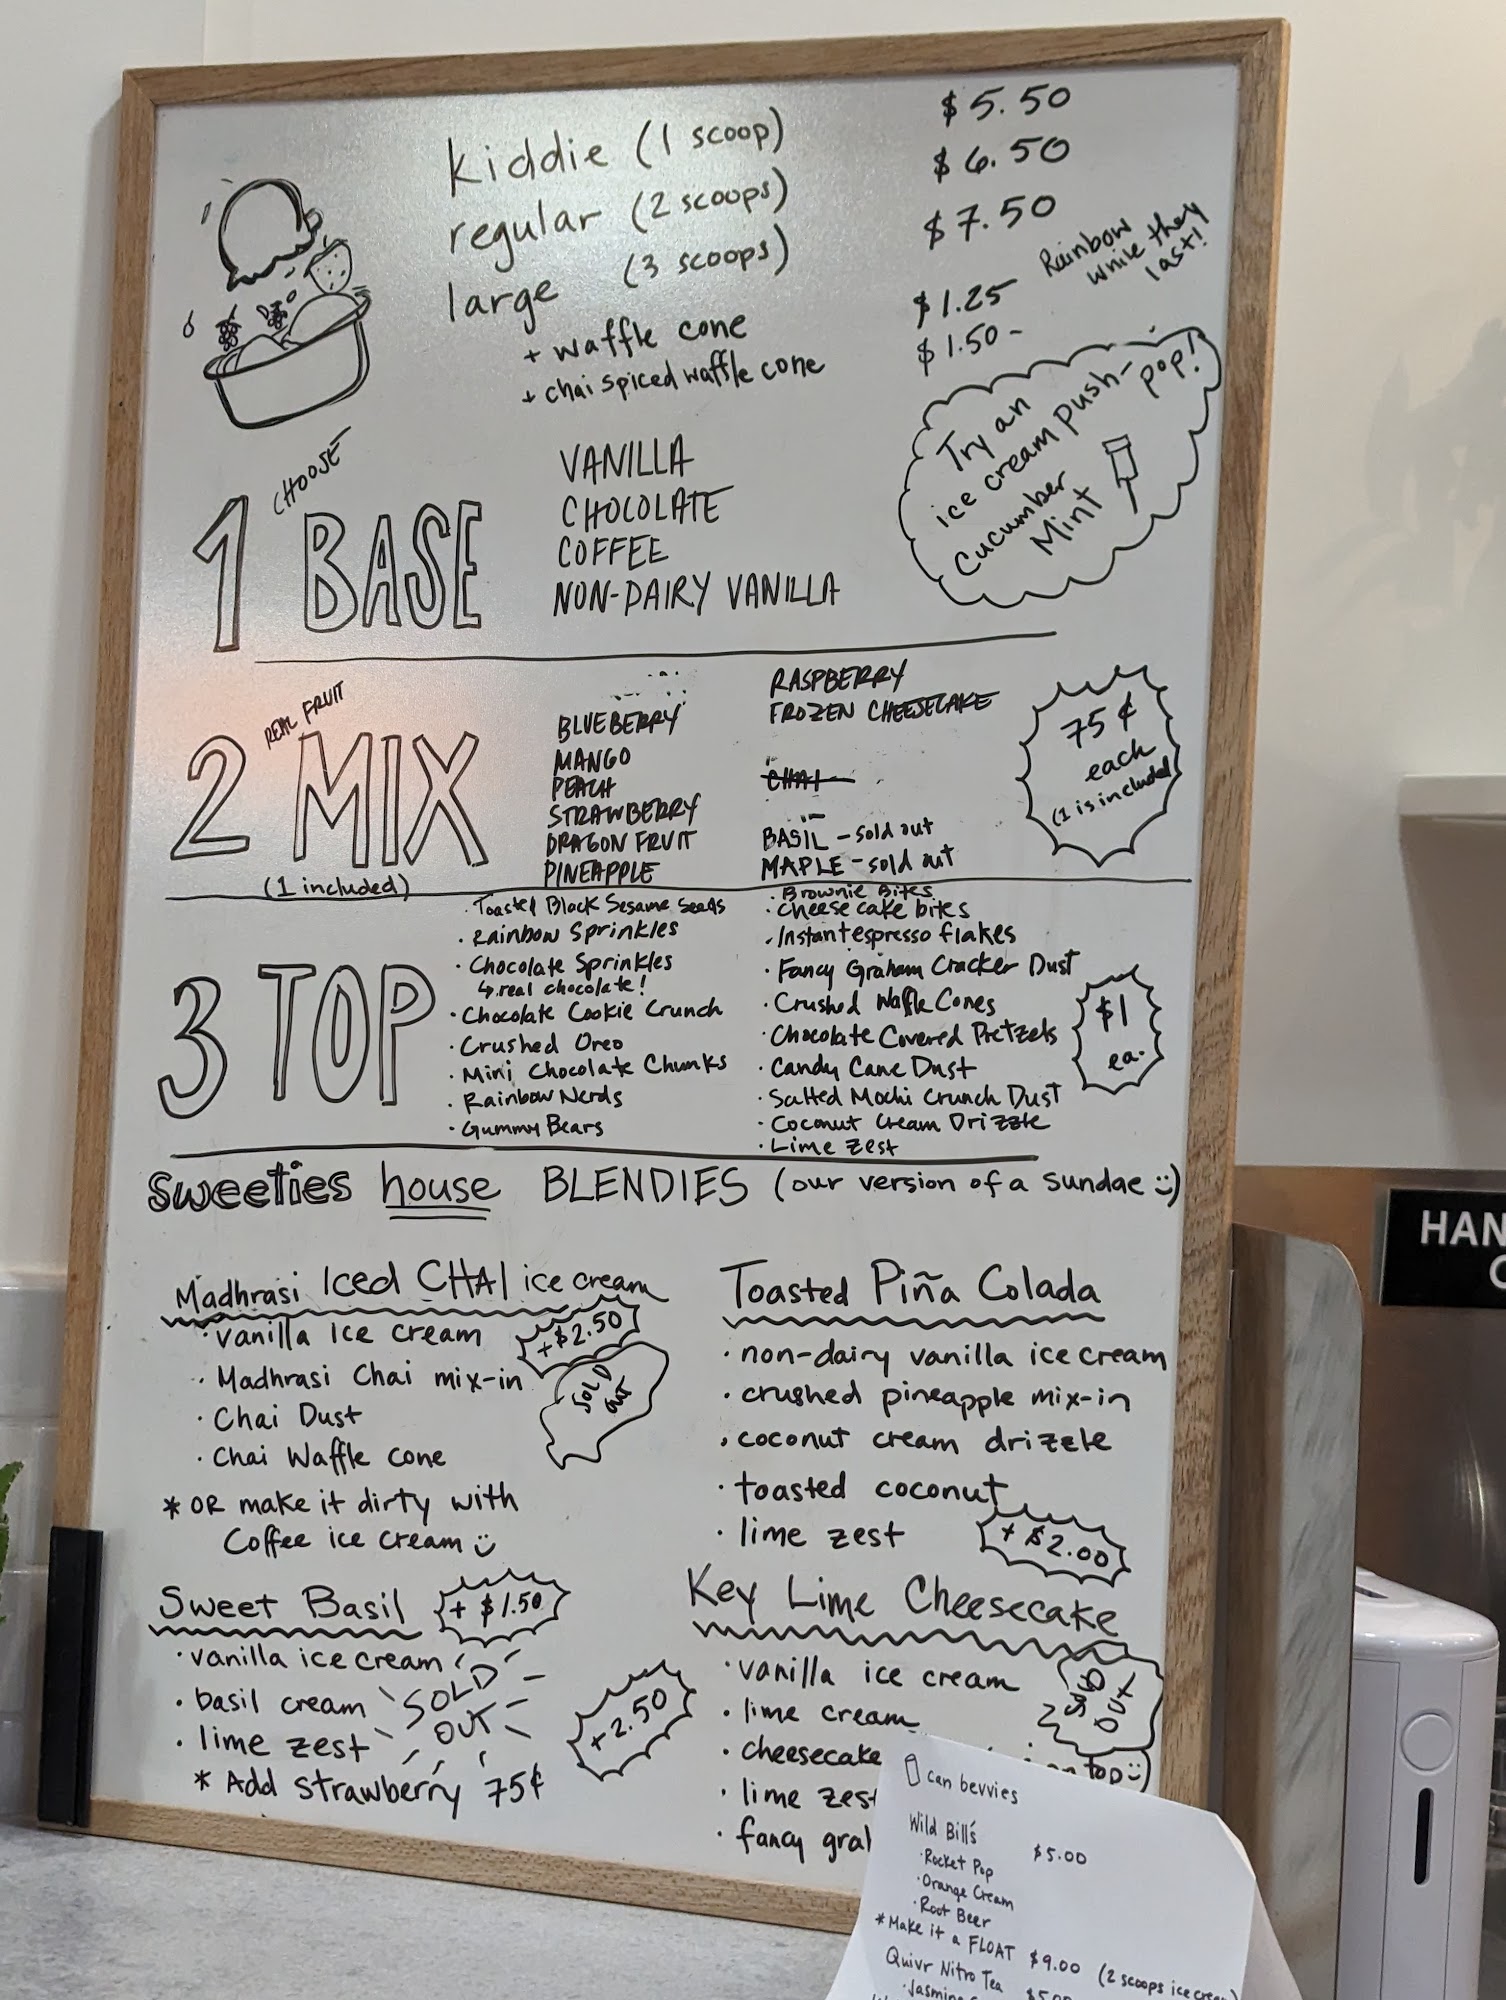 kiddie (1 scoop) $5.50
regular (2 scoops) $6.50
large (3 scoops) $7.50
+ waffle cone $1.25
+ chai spiced waffle cone $1.50 - Rainbow while they last!
Try an
ice cream push-pop!
Cucumber
Mint
CHOOSE
1 BASE
VANILLA
CHOCOLATE
COFFEE
NON-DAIRY VANILLA
2 REAL FRUIT MIX
(1 included)
BLUEBERRY
MANGO
PEACH
STRAWBERRY
DRAGON FRUIT
PINEAPPLE
RASPBERRY
FROZEN CHEESECAKE
CHAI
BASIL - sold out
MAPLE - sold out
75¢
each
(1 is included)
3 TOP
· Toasted Black Sesame Seeds
· Rainbow Sprinkles
· Chocolate Sprinkles
↳ real chocolate!
· Chocolate Cookie Crunch
· Crushed Oreo
· Mini Chocolate Chunks
· Rainbow Nerds
· Gummy Bears
· Brownie Bites
· cheese cake bites
· Instant espresso flakes
· Fancy Graham Cracker Dust
· Crushed Waffle Cones
· Chocolate Covered Pretzels
· Candy Cane Dust
· Salted Mochi Crunch Dust
· Coconut Cream Drizzle
· Lime Zest
$1
ea.
sweeties house BLENDIES (our version of a sundae :)
Madhrasi Iced CHAI ice cream
+ $2.50
SOLD
OUT
· vanilla Ice cream
· Madhrasi Chai mix-in
· Chai Dust
· Chai Waffle cone
* OR make it dirty with
Coffee ice cream :)
Toasted Piña Colada
· non-dairy vanilla ice cream
· crushed pineapple mix-in
· coconut cream drizzle
· toasted coconut
· lime zest
+ $2.00
Sweet Basil + $1.50
· vanilla ice cream
· basil cream
· lime zest
SOLD
OUT
* Add strawberry 75¢
+ 2.50
Key Lime Cheesecake
· vanilla ice cream
· lime cream
· cheesecake top :)
· lime zest
· fancy
SOLD
OUT
can bevvies
Wild Bill's $5.00
· Rocket Pop
· Orange Cream
· Root Beer
* Make it a FLOAT $9.00 (2 scoops ice cream)
Quivr Nitro Tea $5.00
· Jasmine
HAN